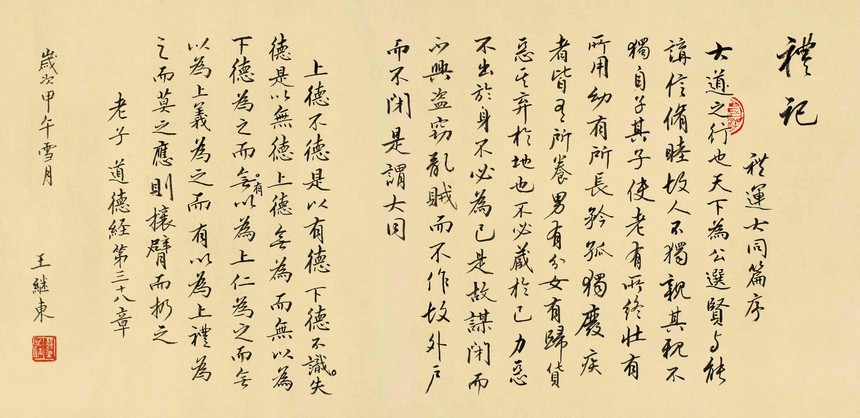 禮記
禮運大同篇序
大道之行也天下為公選賢与能
講信脩睦故人不獨親其親不
獨自子其子使老有所終壯有
所用幼有所長矜孤獨廢疾
者皆有所養男有分女有歸貨
惡其弃於地也不必藏於己力惡
不出於身不必為己是故謀閉而
不興盜竊亂賊而不作故外戶
而不閉是謂大同
上德不德是以有德下德不識失
德是以無德上德無為而無以為
下德為之而無有以為上仁為之而無
以為上義為之而有以為上禮為
之而莫之應則攘臂而扔之
老子道德经第三十八章
歲次甲午雪月
王継東